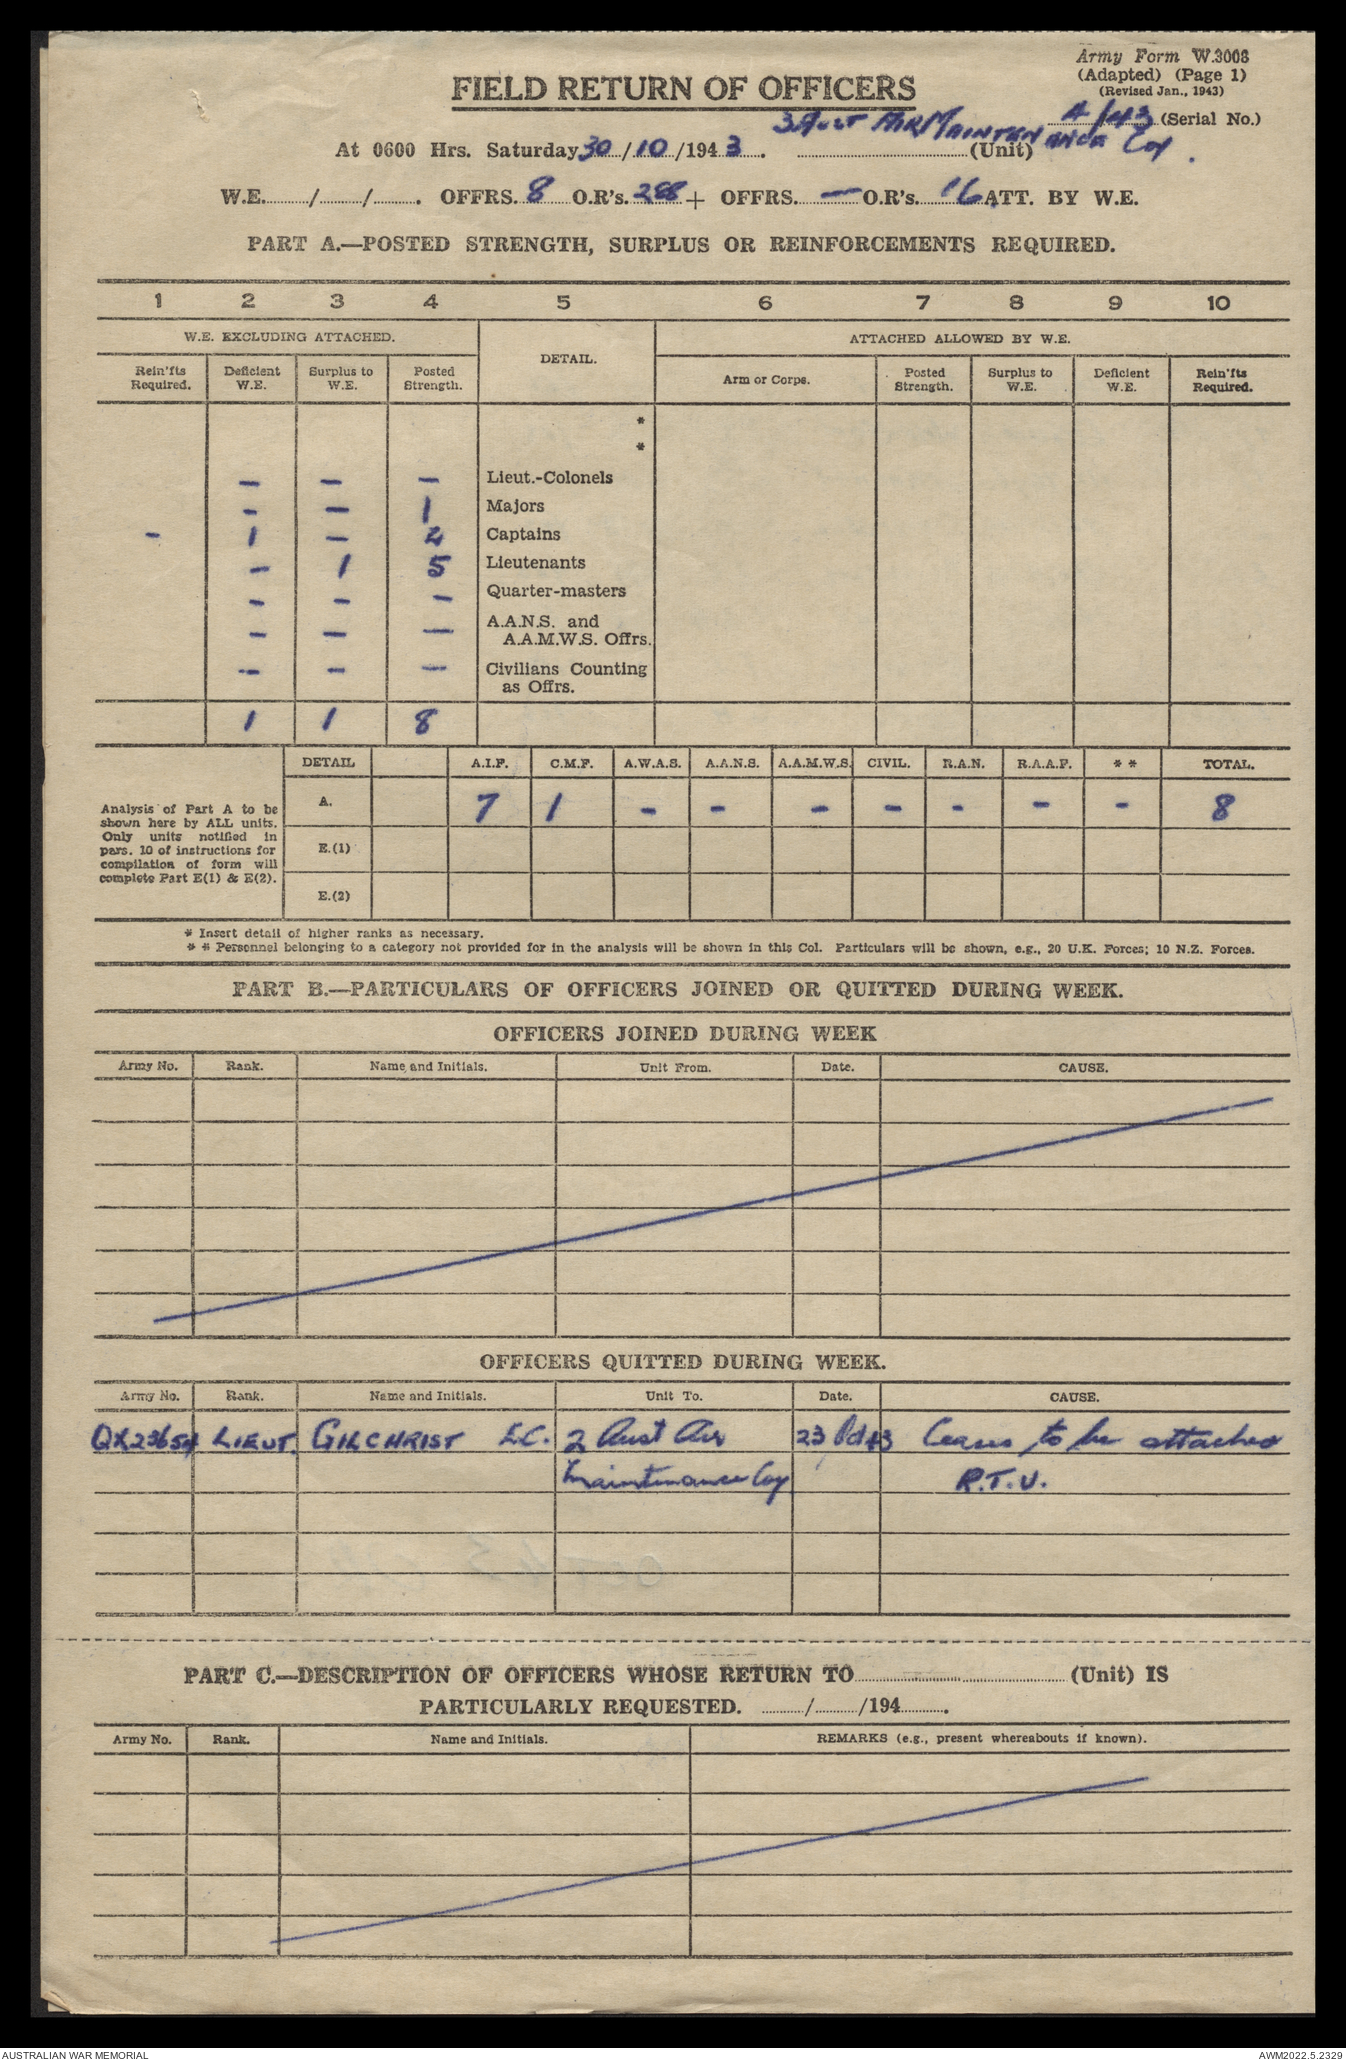 Army Form W.3008
(Adapted) (Page 1)
(Revised Jan., 1943)
FIELD RETURN OF OFFICERS
4/43 (Serial No.)
3 Aust Air Maintenance Coy.
At 0600 Hrs. Saturday 30/10/1943. (Unit)
W.E. / / . OFFRS. 8 O.R's. 288 + OFFRS. — O.R's. 16 ATT. BY W.E.
PART A.—POSTED STRENGTH, SURPLUS OR REINFORCEMENTS REQUIRED.
1 2 3 4 5 6 7 8 9 10
W.E. EXCLUDING ATTACHED. DETAIL. ATTACHED ALLOWED BY W.E.
Rein'fts Required. Deficient W.E. Surplus to W.E. Posted Strength. Arm or Corps. Posted Strength. Surplus to W.E. Deficient W.E. Rein'fts Required.
*
*
— — — Lieut.-Colonels
— — 1 Majors
— 1 — 2 Captains
— 1 5 Lieutenants
— — — Quarter-masters
— — — A.A.N.S. and A.A.M.W.S. Offrs.
— — — Civilians Counting as Offrs.
1 1 8
DETAIL A.I.F. C.M.F. A.W.A.S. A.A.N.S. A.A.M.W.S. CIVIL. R.A.N. R.A.A.F. * * TOTAL.
A. 7 1 — — — — — — — 8
E.(1)
E.(2)
Analysis of Part A to be
shown here by ALL units.
Only units notified in
pars. 10 of instructions for
compilation of form will
complete Part E(1) & E(2).
* Insert detail of higher ranks as necessary.
* * Personnel belonging to a category not provided for in the analysis will be shown in this Col. Particulars will be shown, e.g., 20 U.K. Forces; 10 N.Z. Forces.
PART B.—PARTICULARS OF OFFICERS JOINED OR QUITTED DURING WEEK.
OFFICERS JOINED DURING WEEK
Army No. Rank. Name and Initials. Unit From. Date. CAUSE.
OFFICERS QUITTED DURING WEEK.
Army No. Rank. Name and Initials. Unit To. Date. CAUSE.
QX23654 LIEUT. GILCHRIST L.C. 2 Aust Air 23 Oct 43 Ceases to be attached
Maintenance Coy R.T.U.
PART C.—DESCRIPTION OF OFFICERS WHOSE RETURN TO (Unit) IS
PARTICULARLY REQUESTED. / /194 .
Army No. Rank. Name and Initials. REMARKS (e.g., present whereabouts if known).
AUSTRALIAN WAR MEMORIAL AWM2022.5.2329